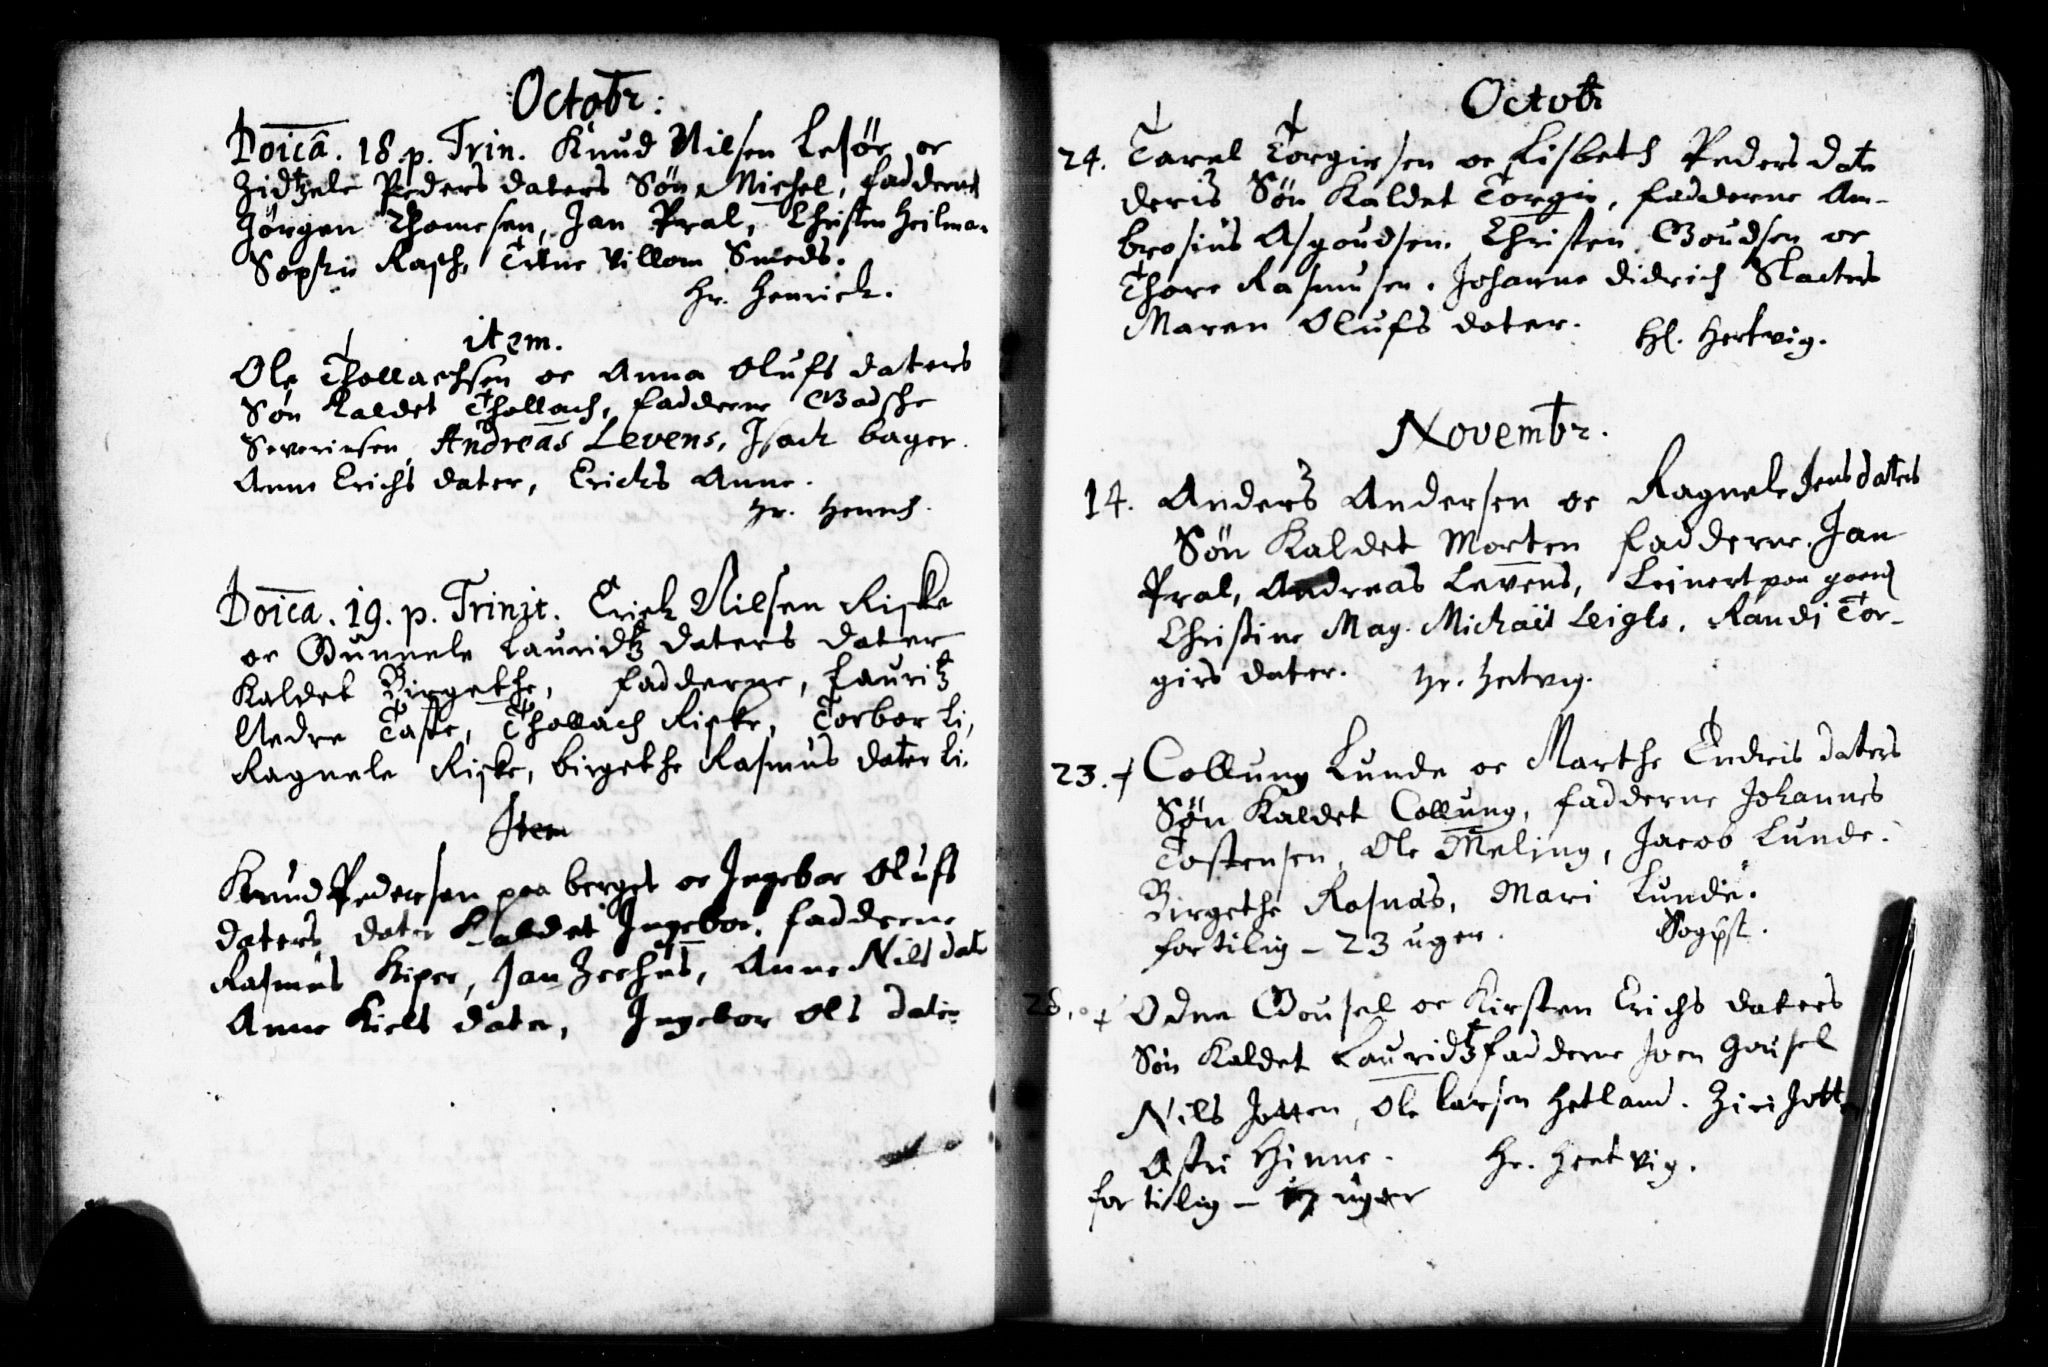 Octobr:
Doica. 18. p. Trin. Knud Nilsen Lesør oc
Zidtzele Peders daters Søn Michel, fadderne
Jørgen Thomesen, Jan Pral, Christen Heilman
Sophii Rasch, Trine Villom Smeds.
Hr. Henrich.
item.
Ole Thollachsen oc Anna Olufs daters
Søn kaldet Thollach, fadderne Gadsche
Severinsen, Andreas Levens, Isach bager.
Anne Erichs dater, Erichs Anne.
Hr. Henrich.
Doica. 19. p. Trinit. Erich Nilsen Riske
oc Gunnele Lauridtz daters dater
Kaldet Birgethe, fadderne, Lauritz
Nedre Taste, Thollach Riske, Torbor Li,
Ragnele Riske, birgethe Rasmus dater Li.
Item
Knud Pedersen paa berget oc Ingebor Olufs
daters dater Kaldet Ingebor, fadderne
Rasmus Kiper, Jan Zeehus, Anne Nils dater
Anne Kiels dater, Ingebor Ols dater
Octobr
24. Tarel Torgiersen oc Lisbeth Peders dater
deris Søn Kaldet Torgir, fadderne Am-
brosius Asgoudsen. Christen Goudsen oc
Thore Rasmusen. Johanne didrich Slacters
Maren Olufs dater. Hl. Hertvig.
Novembr.
14. Anders Andersen oc Ragnele Jens daters
Søn Kaldet Morten fadderne. Jan
Pral, Andreas Levens, Leinert paa
Christine Mag. Michael Leigls, Randi Tor-
girs dater. Hr. Hertvig.
23. Collung Lunde oc Marthe Endris daters
Søn Kaldet Collung, fadderne Johannes
Tostensen, Ole Meling, Jacob Lunde.
Birgethe Rasmus, Mari Lunde.
for tilig - 23 uger. Sogpst.
28. Odne Gousel oc Kirsten Erichs daters
Søn Kaldet Lauridtz fadderne Joen Gousel
Nils Jotten, Ole Larsen Hetland. Ziri Jotten
Astri Hinne. Hr. Hertvig.
for tilig - 17 uger